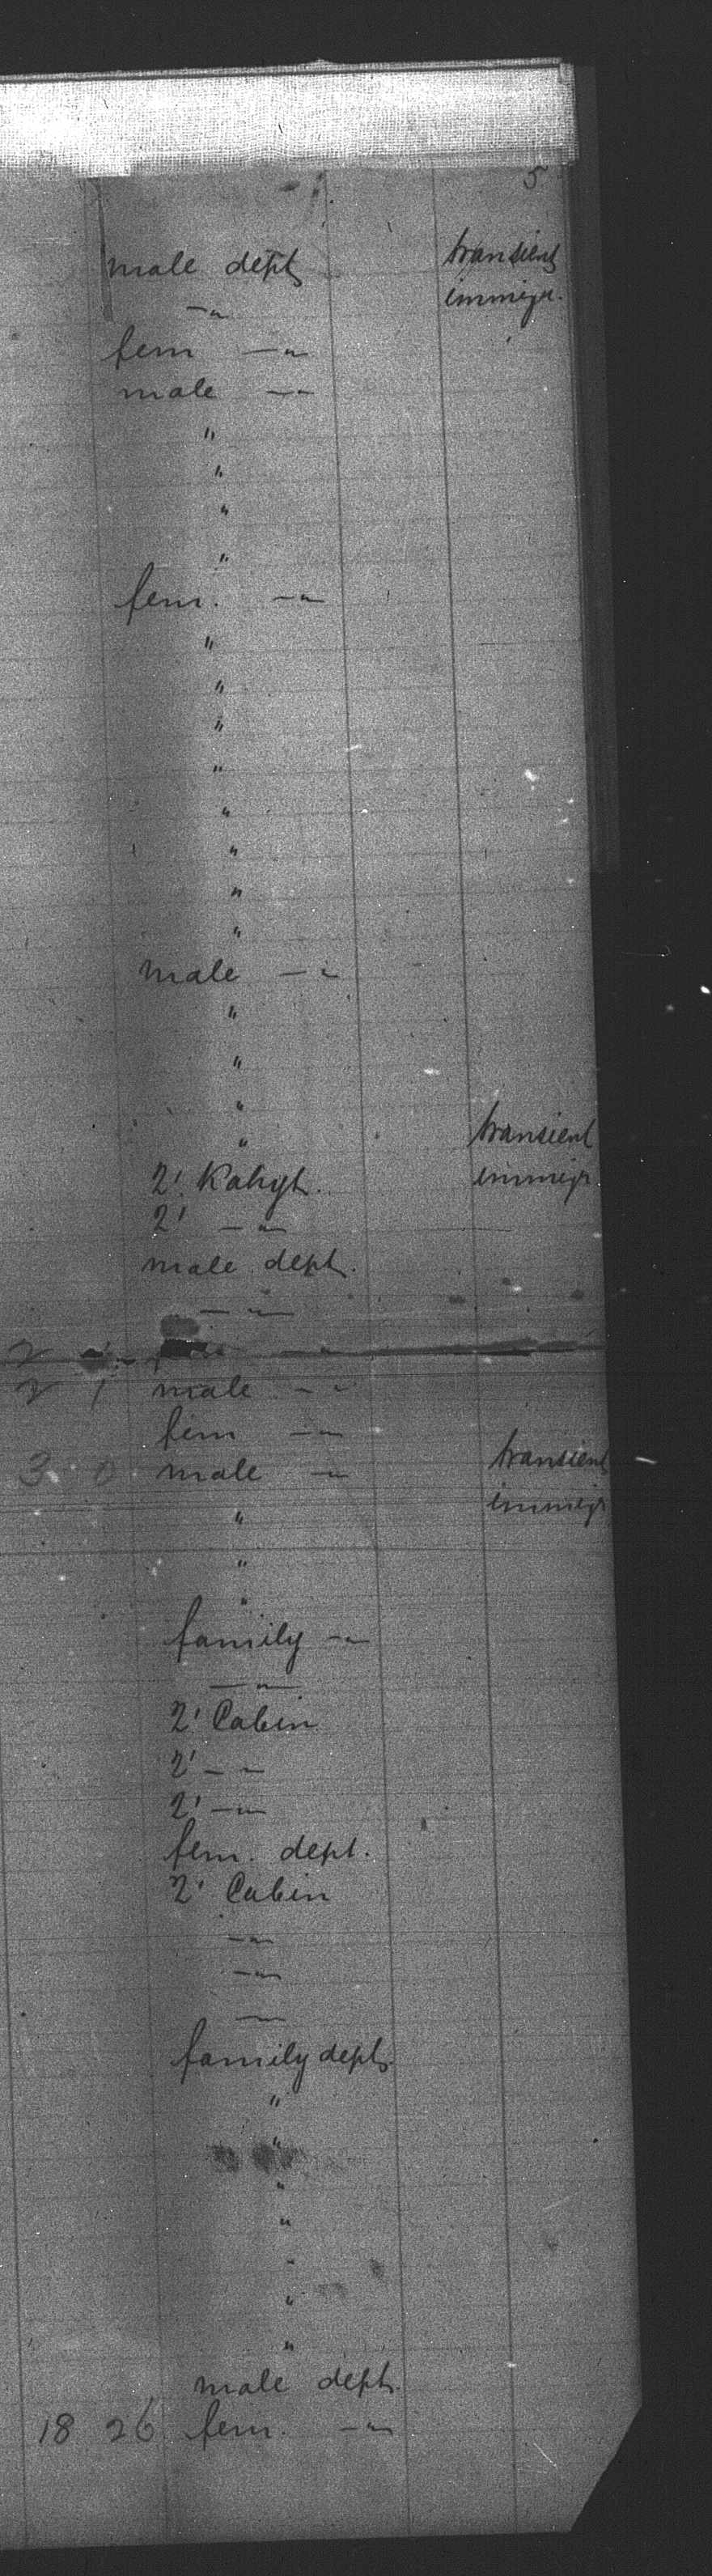 5
male dept transient
—"— immigr.
fem —"—
male —"—
"
"
"
"
fem. —"—
"
"
"
"
"
"
"
"
male —"—
"
"
"
" transient
2' Kahyt. immigr
2' —"—
male dept.
—"—
2 —"—
2 1 male —"—
fem —"—
3 0 male —"— transient
" immigr
"
"
family —"—
—"—
2' Cabin
2' —"—
2' —"—
fem. dept.
2' Cabin
—"—
—"—
—"—
family dept.
"
"
"
"
"
"
"
male dept.
18 26 fem. —"—